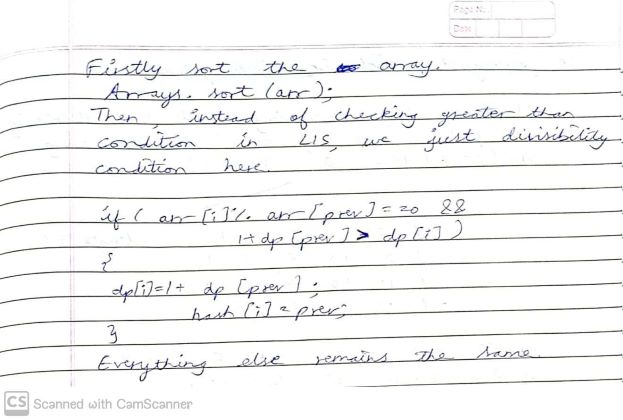 Page No.
Date
Firstly sort the array.
Arrays. sort (arr);
Then, instead of checking greater than
condition in LIS, we just divisibility
condition here.
if ( arr [i] % arr [prev] = = 0 &&
1+ dp [prev] > dp [i] )
{
dp[i]=1+ dp [prev ] ;
hash [i] = prev;
}
Everything else remains the same.
CS Scanned with CamScanner